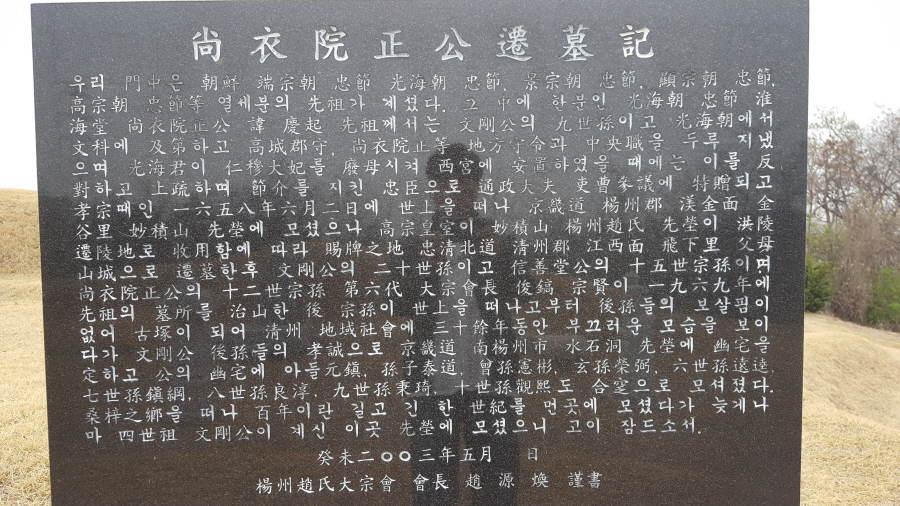 尙衣院正公遷墓記
우리 門中은 朝鮮 端宗朝 忠節 光海朝 忠節, 景宗朝 忠節, 顯宗朝 忠節,
高宗朝 忠節等 열세분의 先祖가 계셨다. 그 中에 한분인 光海朝 忠節 淮
海堂 尙衣院正公 諱 慶起 先祖께서는 文剛公의 九世孫이고 光海朝에서
文科에 及第하고 高城郡守, 尙衣院正等 地方守令과 中央職을 두루 지냈
으며 光海君이 仁穆大妃를 廢母시켜 西宮에 安置하였을 때에는 이를 反
對하고 上疏하며 節介를 지킨 忠臣으로 通政大夫 吏曹參議에 特贈되고
孝宗때인 一六五八年六月二日에 世上을 떠나 京畿道 楊州郡 渼金面 金
谷里 妙積山 先塋에 모셨으나 高宗皇室이 妙積山 楊州趙氏 先塋이 洪陵
遷陵地로 收用함에 따라 賜牌之地 忠淸北道 淸州郡 江西面 飛下里 父母
山城으로 遷墓한후 文剛公의 二十世孫이고 信善堂公의 十五世宗孫이며
尙衣院正公의 十二世宗孫 第六代 大宗會長 俊鎬 宗賢이 一九六九年에
先祖의 墓所를 治山한 後 宗孫이 世上을 떠나고부터 後孫들의 보살핌이
없어 古塚이 되어 淸州 地域社會에 三十餘年동안 부끄러운 모습을 보이
다가 文剛公 後孫들의 孝誠으로 京畿道 南楊州市 水石洞 先塋에 幽宅을
定하고 公의 幽宅에 아들元鎭, 孫子泰道, 曾孫憲彬, 玄孫榮弼, 六世孫遠逵,
七世孫鎭綱, 八世孫良淳, 九世孫秉琦, 十世孫觀熙도 合窆으로 모셔졌다.
桑梓之鄕을 떠나 百年이란 길고 긴 한 世紀를 먼곳에 모셨다가 늦게나
마 四世祖 文剛公이 계신 이곳 先塋에 모셨으니 고이 잠드소서.
癸未二〇〇三年五月 日
楊州趙氏大宗會 會長 趙 源 煥 謹書